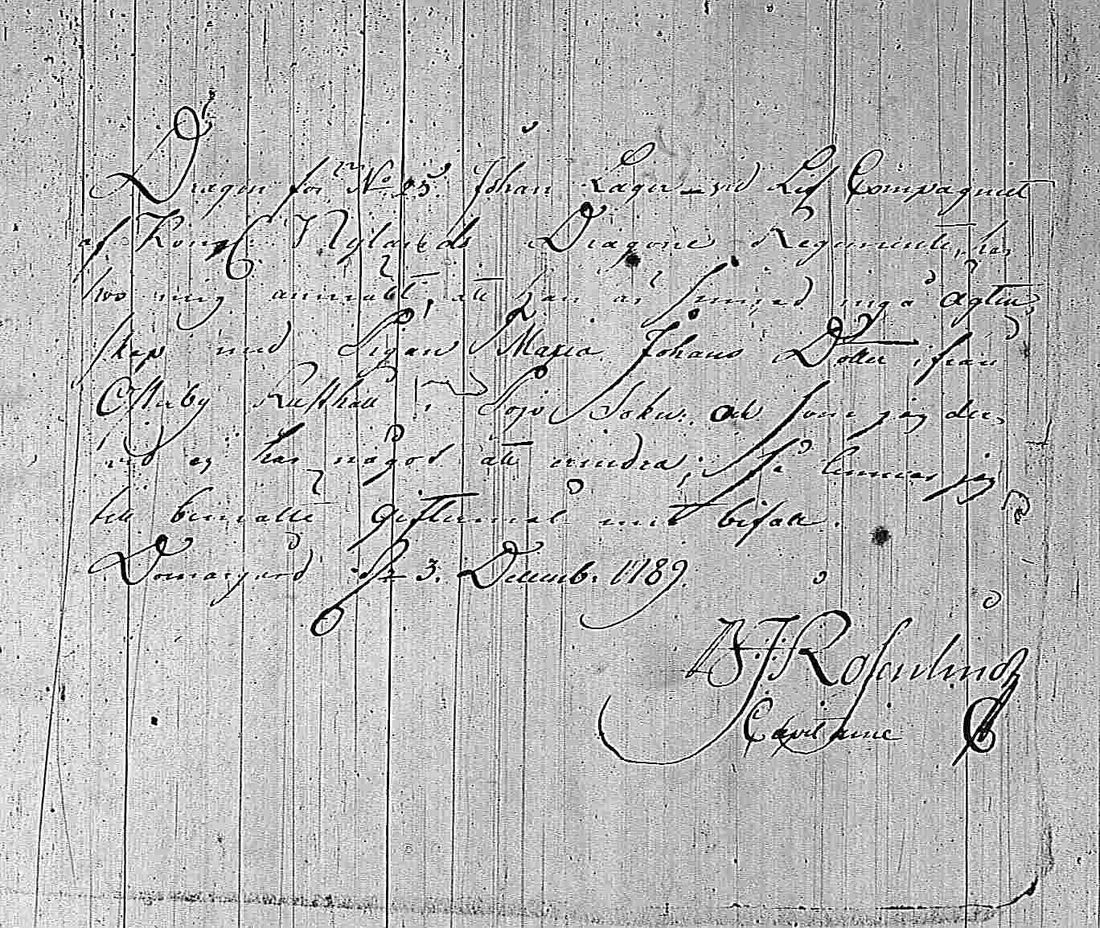 Dragon för N:o 25 Johan Lager vid Lif Compagniet
af Kongl: Nylands Dragone Regimente, har
hos mig anmält, att han är sinnad ingå ägten
skap med Pigan Maria Johans Dotter ifrån
Österby Rusthåll i Pojo Sokn. och som jag der
vid ej har något att erindra; Så lemnas jag
till bemälte giftermål mit bifall.
Domargård d 3. Decemb. 1789.
Rosenlind
Capitaine